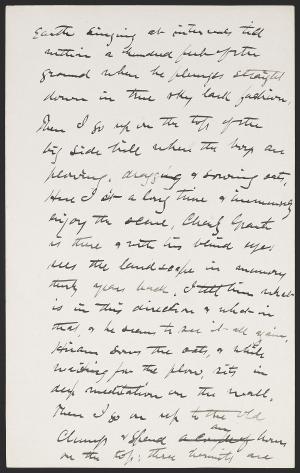 Earth singing at intervals till
within a hundred feet of the
ground when he plunges straight
down in true sky lark fashion.
Then I go up on the top of the
big side hill where the boys are
plowing, dragging & sowing oats,
Here I sit a long time & immensely
enjoy the scene, Charly Grant
is there & with his blind eyes
sees the landscape in memory
thirty years back. I tell him what
is in this direction & what in
that, & he seems to see it all again,
Hiram sows the oats, & while
waiting for the plow, sits in
deep meditation on the wall.
Then I go on up to the Old
Clump & spend an hour
on the top; three hermits are